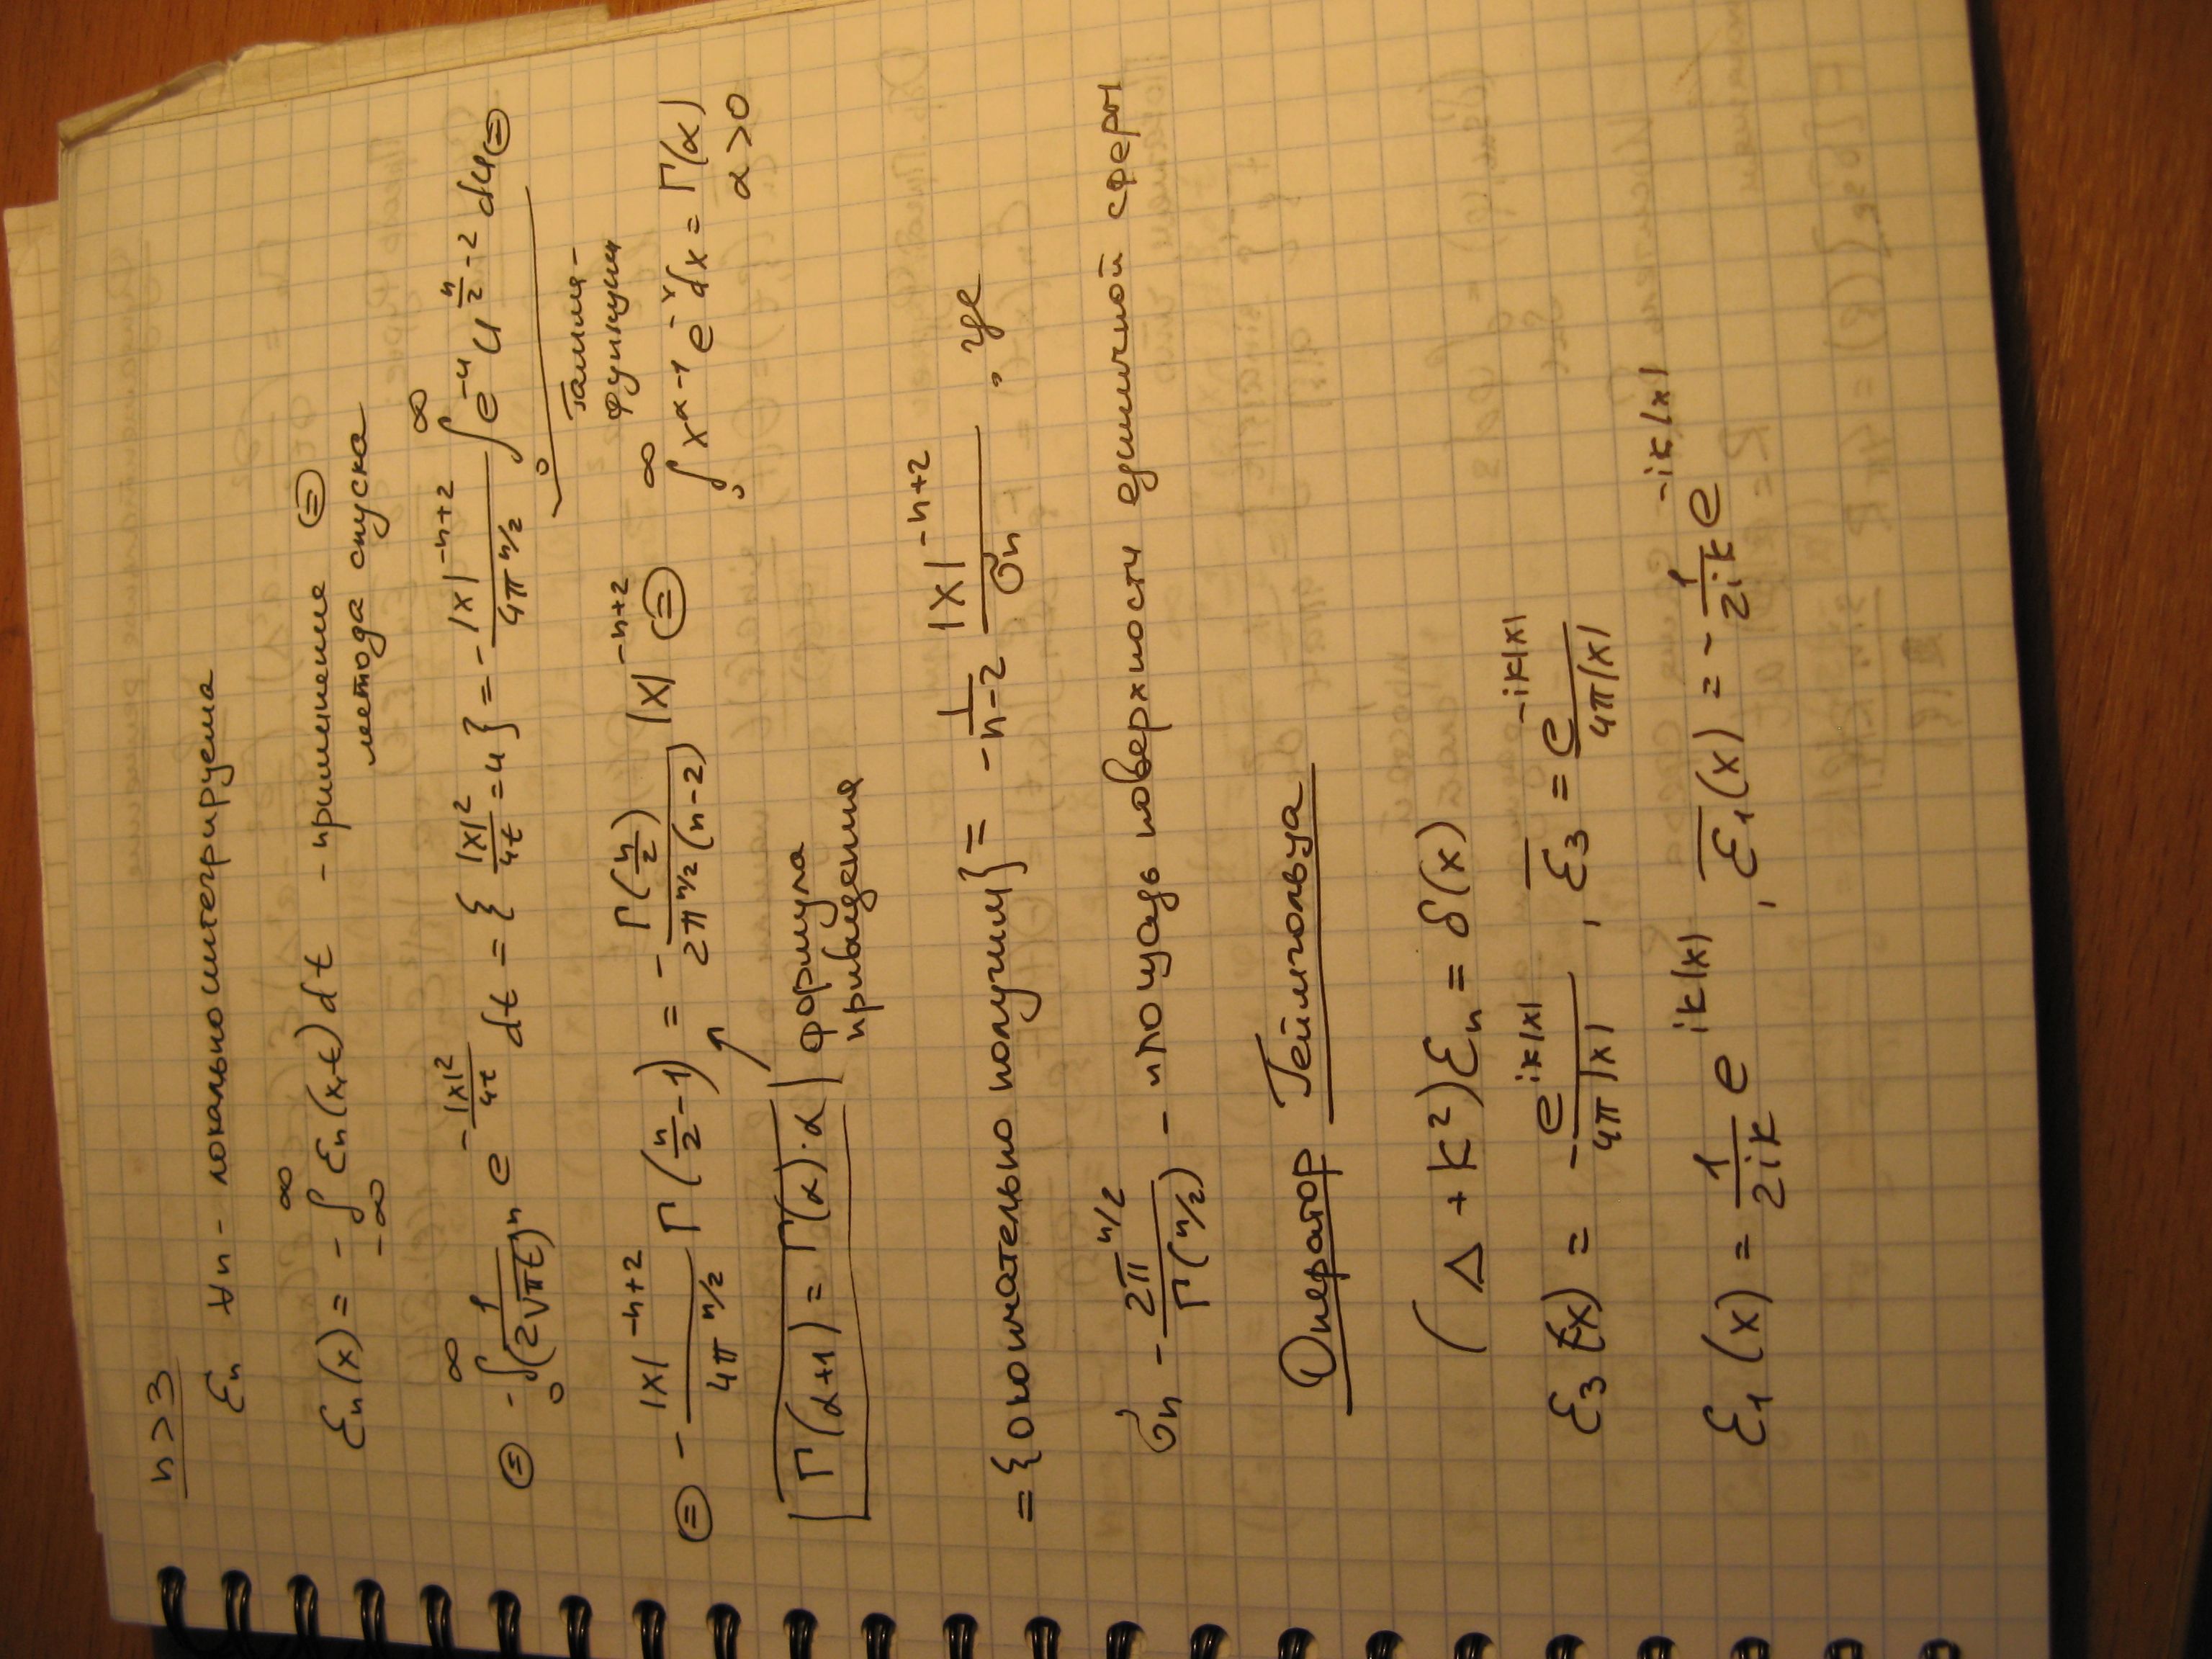 n>3
ℰₙ ∀n - локально интегрируема
ℰₙ(x) = - ∫_{-∞}^{∞} ℰₙ(x,t)dt - применение ⊜
метода спуска
⊜ - ∫_0^∞ 1/(2√πt)ⁿ e^{-|x|²/4t} dt = { |x|²/4t = u } = - |x|^{-n+2}/4π^{n/2} ∫_0^∞ e^{-u} u^{n/2 - 2} du ⊜
гамма-
функция
⊜ - |x|^{-n+2}/4π^{n/2} Γ(n/2 - 1) = - Γ(n/2)/2π^{n/2}(n-2) |x|^{-n+2} ⊜ ∫_0^∞ x^{α-1} e^{-x} dx = Γ(α)
α>0
Γ(α+1) = Γ(α)·α формула
приведения
= {окончательно получим} = - 1/n-2 |x|^{-n+2}/σₙ , где
σₙ - 2π^{n/2}/Γ(n/2) - площадь поверхности единичной сферы
Оператор Гельмгольца
(Δ + k²)ℰₙ = δ(x)
ℰ₃(x) = - e^{ik|x|}/4π|x| , ℰ̅₃ = e^{-ik|x|}/4π|x|
ℰ₁(x) = 1/2ik e^{ik|x|} , ℰ̅₁(x) = - 1/2ik e^{-ik|x|}